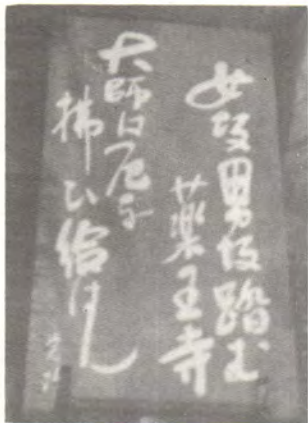 女坂男坂踏む
薬王寺
大師は厄を
拂ひ給はん